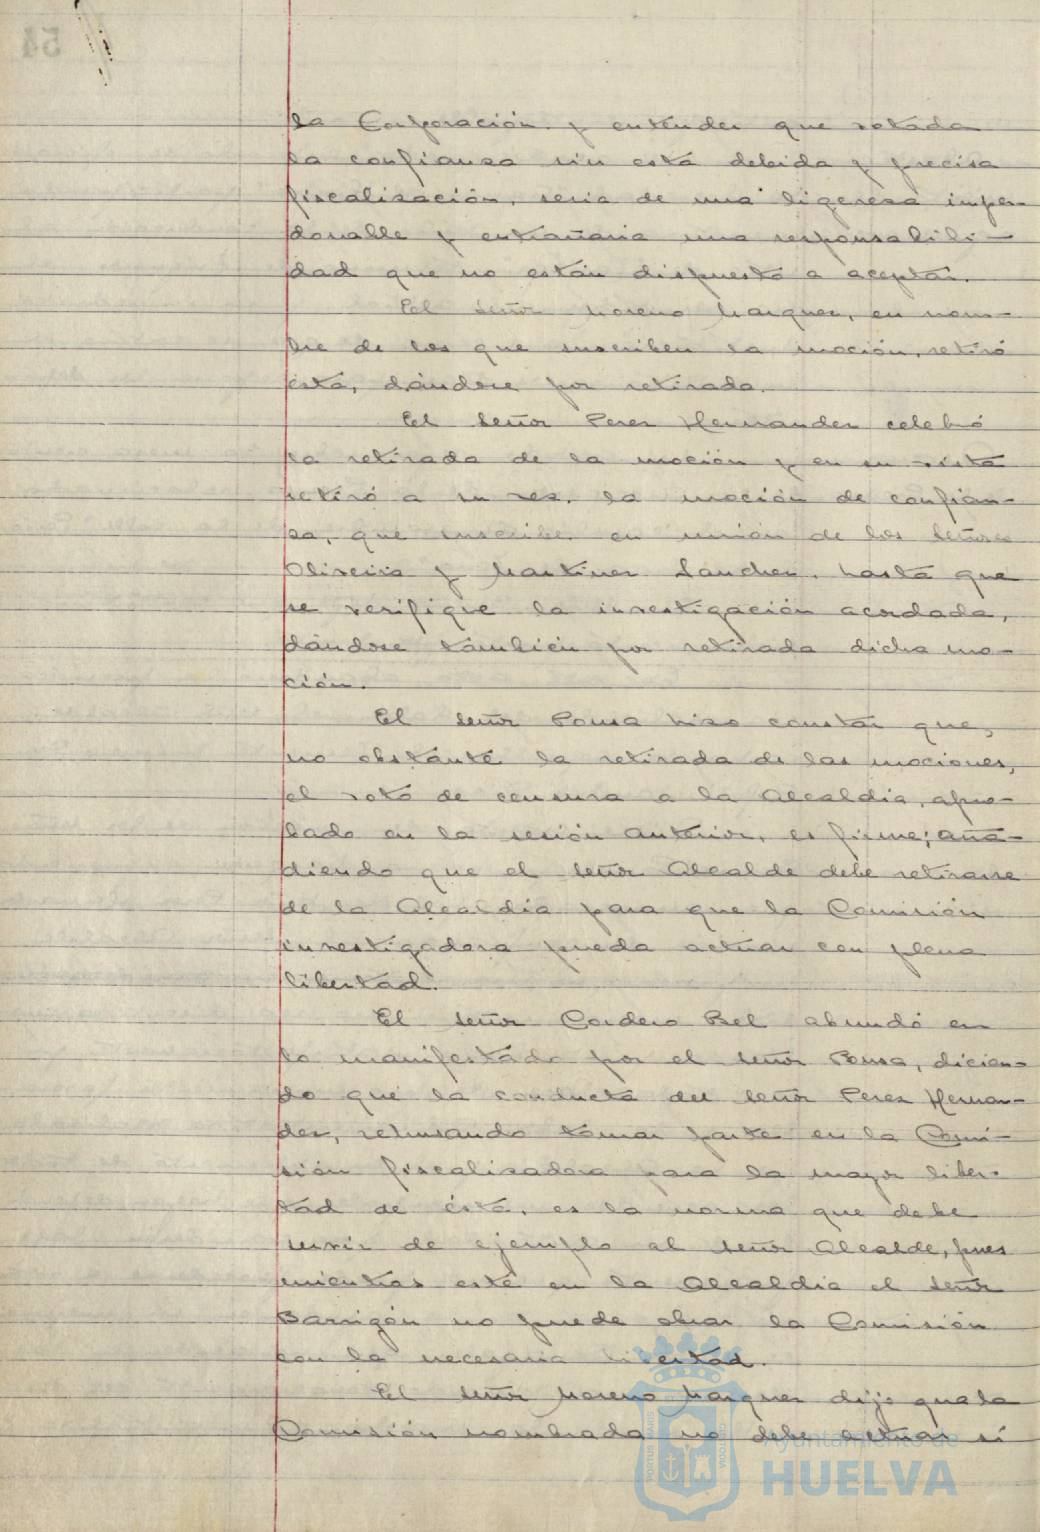 la Corporación y entender que votada
la confianza sin esta debida y precisa
fiscalización, seria de una ligereza imper-
donable y entrañaria una responsabili-
dad que no están dispuesto a aceptar.
El señor Moreno Marquez, en nom-
bre de los que suscriben la moción, retiró
ésta, dándose por retirada.
El señor Perez Hernandez celebró
la retirada de la moción y en su vista
retiró a su vez, la moción de confian-
za, que suscribe en unión de los señores
Oliveira y Martinez Sanchez, hasta que
se verifique la investigación acordada,
dándose también por retirada dicha mo-
ción.
El señor Ponsa hizo constar que,
no obstante la retirada de las mociones,
el voto de censura a la Alcaldia, apro-
bado en la sesión anterior, es firme; aña-
diendo que el señor Alcalde debe retirarse
de la Alcaldia para que la Comisión
investigadora pueda actuar con plena
libertad.
El señor Cordero Bel abundó en
lo manifestado por el señor Ponsa, dicien-
do que la conducta del señor Perez Hernan-
dez, rehusando tomar parte en la Comi-
sión fiscalizadora para la mayor liber-
tad de ésta, es la norma que debe
servir de ejemplo al señor Alcalde, pues
mientras esté en la Alcaldia el señor
Barrigón no puede obrar la Comisión
con la necesaria libertad.
El señor Moreno Marquez dijo que la
Comisión nombrada no debe actuar si
Ayuntamiento de
HUELVA
PORTUS MARIS
54